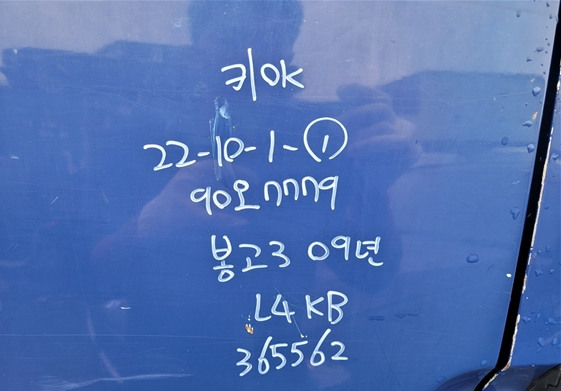 키OK
22-10-1-①
90오7779
봉고3 09년
L4KB
365562